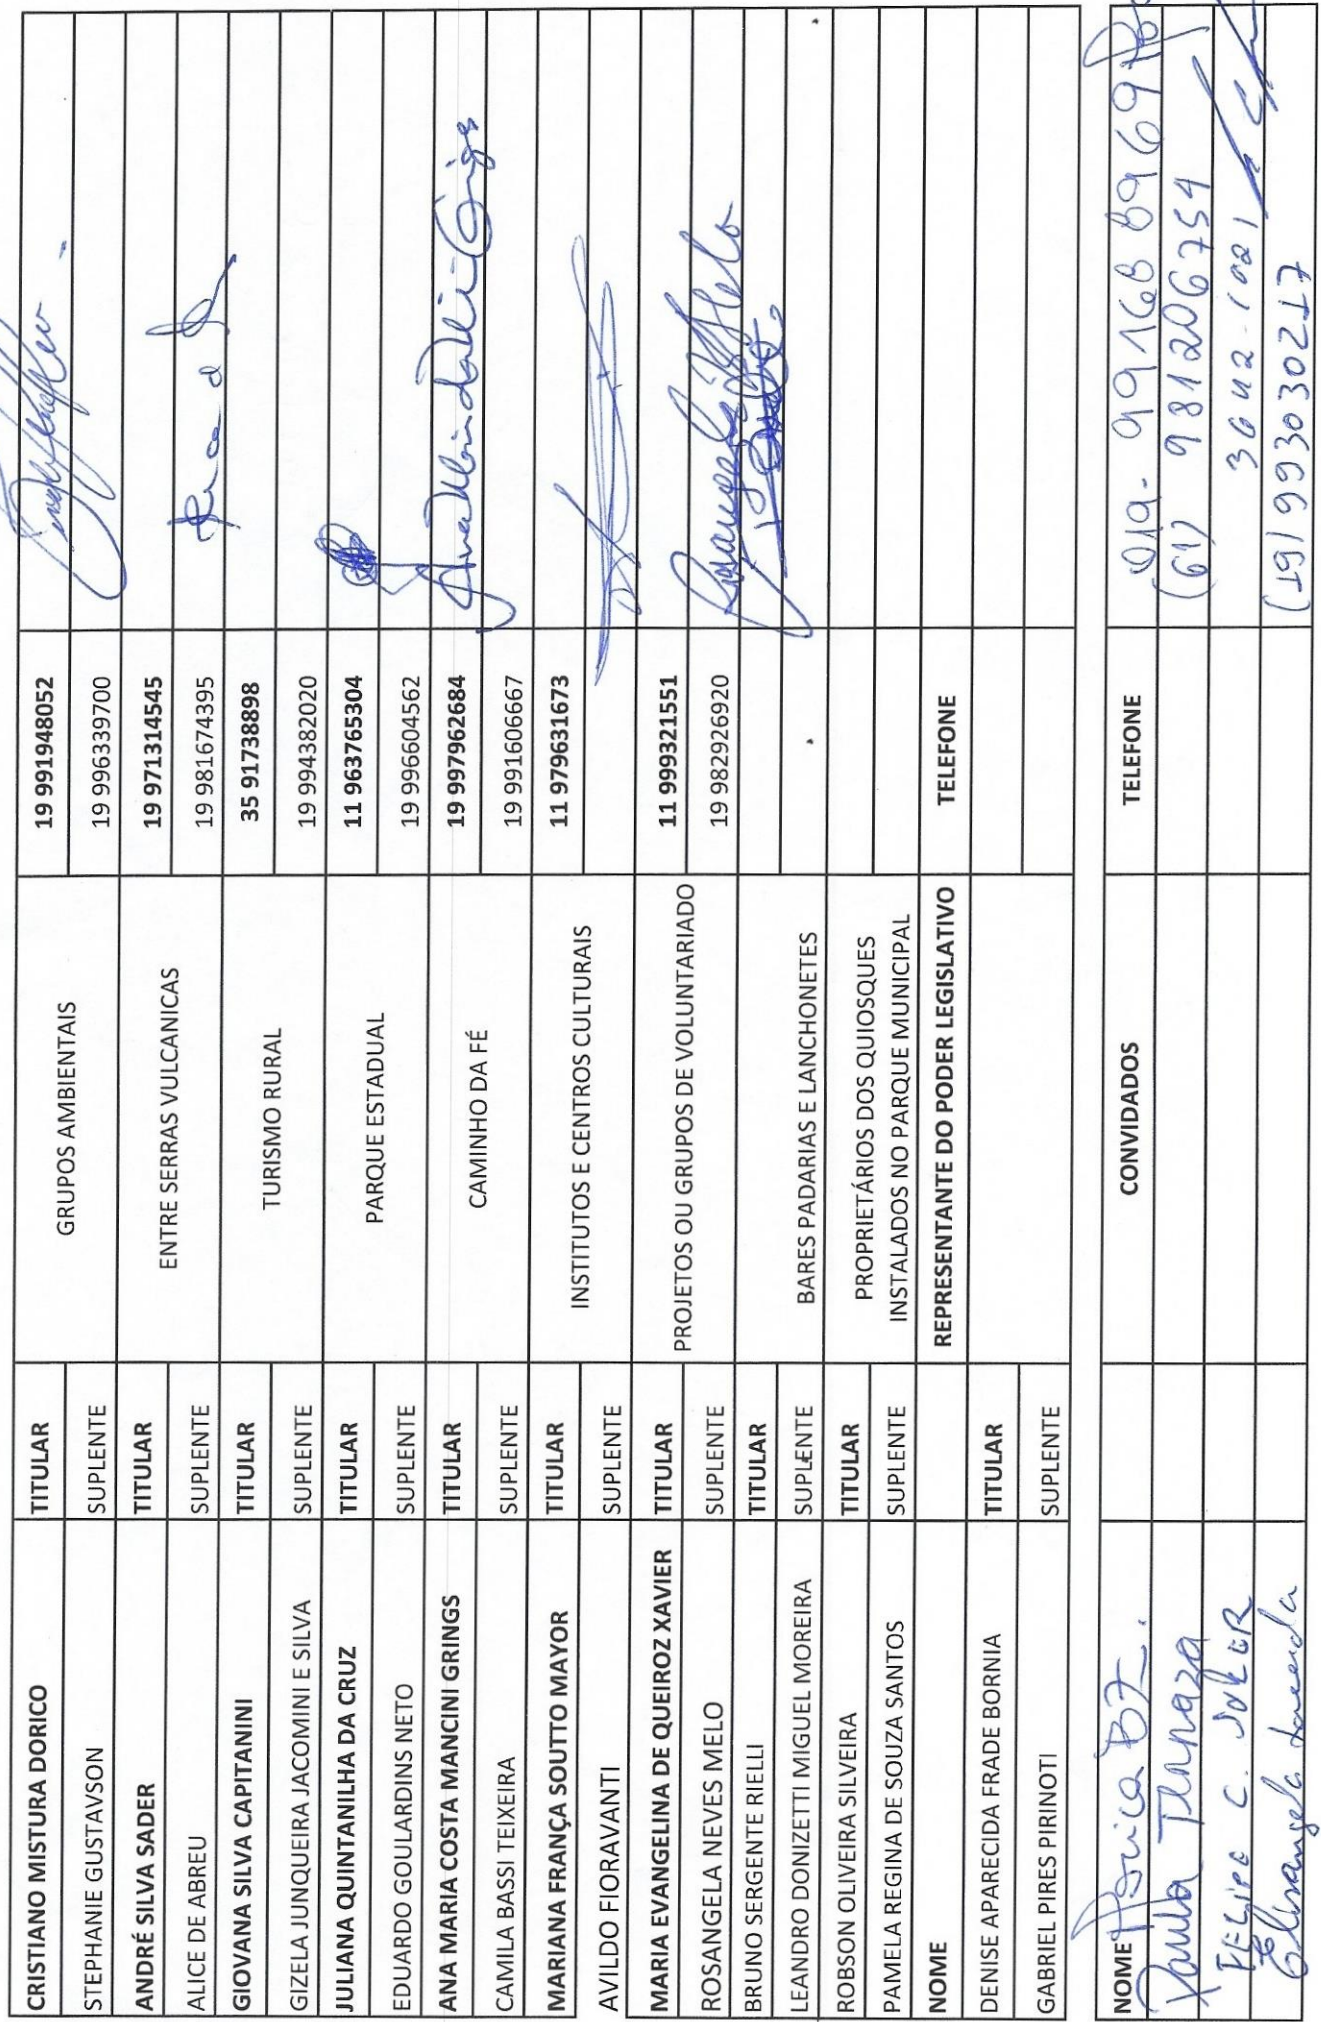 CRISTIANO MISTURA DORICO TITULAR GRUPOS AMBIENTAIS 19 991948052
STEPHANIE GUSTAVSON SUPLENTE 19 996339700
ANDRÉ SILVA SADER TITULAR ENTRE SERRAS VULCANICAS 19 971314545
ALICE DE ABREU SUPLENTE 19 981674395
GIOVANA SILVA CAPITANINI TITULAR TURISMO RURAL 35 91738898
GIZELA JUNQUEIRA JACOMINI E SILVA SUPLENTE 19 994382020
JULIANA QUINTANILHA DA CRUZ TITULAR PARQUE ESTADUAL 11 963765304
EDUARDO GOULARDINS NETO SUPLENTE 19 996604562
ANA MARIA COSTA MANCINI GRINGS TITULAR CAMINHO DA FÉ 19 997962684
CAMILA BASSI TEIXEIRA SUPLENTE 19 991606667
MARIANA FRANÇA SOUTTO MAYOR TITULAR INSTITUTOS E CENTROS CULTURAIS 11 979631673
AVILDO FIORAVANTI SUPLENTE
MARIA EVANGELINA DE QUEIROZ XAVIER TITULAR PROJETOS OU GRUPOS DE VOLUNTARIADO 11 999321551
ROSANGELA NEVES MELO SUPLENTE 19 982926920
BRUNO SERGENTE RIELLI TITULAR
LEANDRO DONIZETTI MIGUEL MOREIRA SUPLENTE BARES PADARIAS E LANCHONETES
ROBSON OLIVEIRA SILVEIRA TITULAR PROPRIETÁRIOS DOS QUIOSQUES
PAMELA REGINA DE SOUZA SANTOS SUPLENTE INSTALADOS NO PARQUE MUNICIPAL
NOME REPRESENTANTE DO PODER LEGISLATIVO TELEFONE
DENISE APARECIDA FRADE BORNIA TITULAR
GABRIEL PIRES PIRINOTI SUPLENTE
NOME CONVIDADOS TELEFONE 019- 99168 8969
Paula (61) 981206754
FELIPE C. 3642-1021
Elisangela (19) 993030217